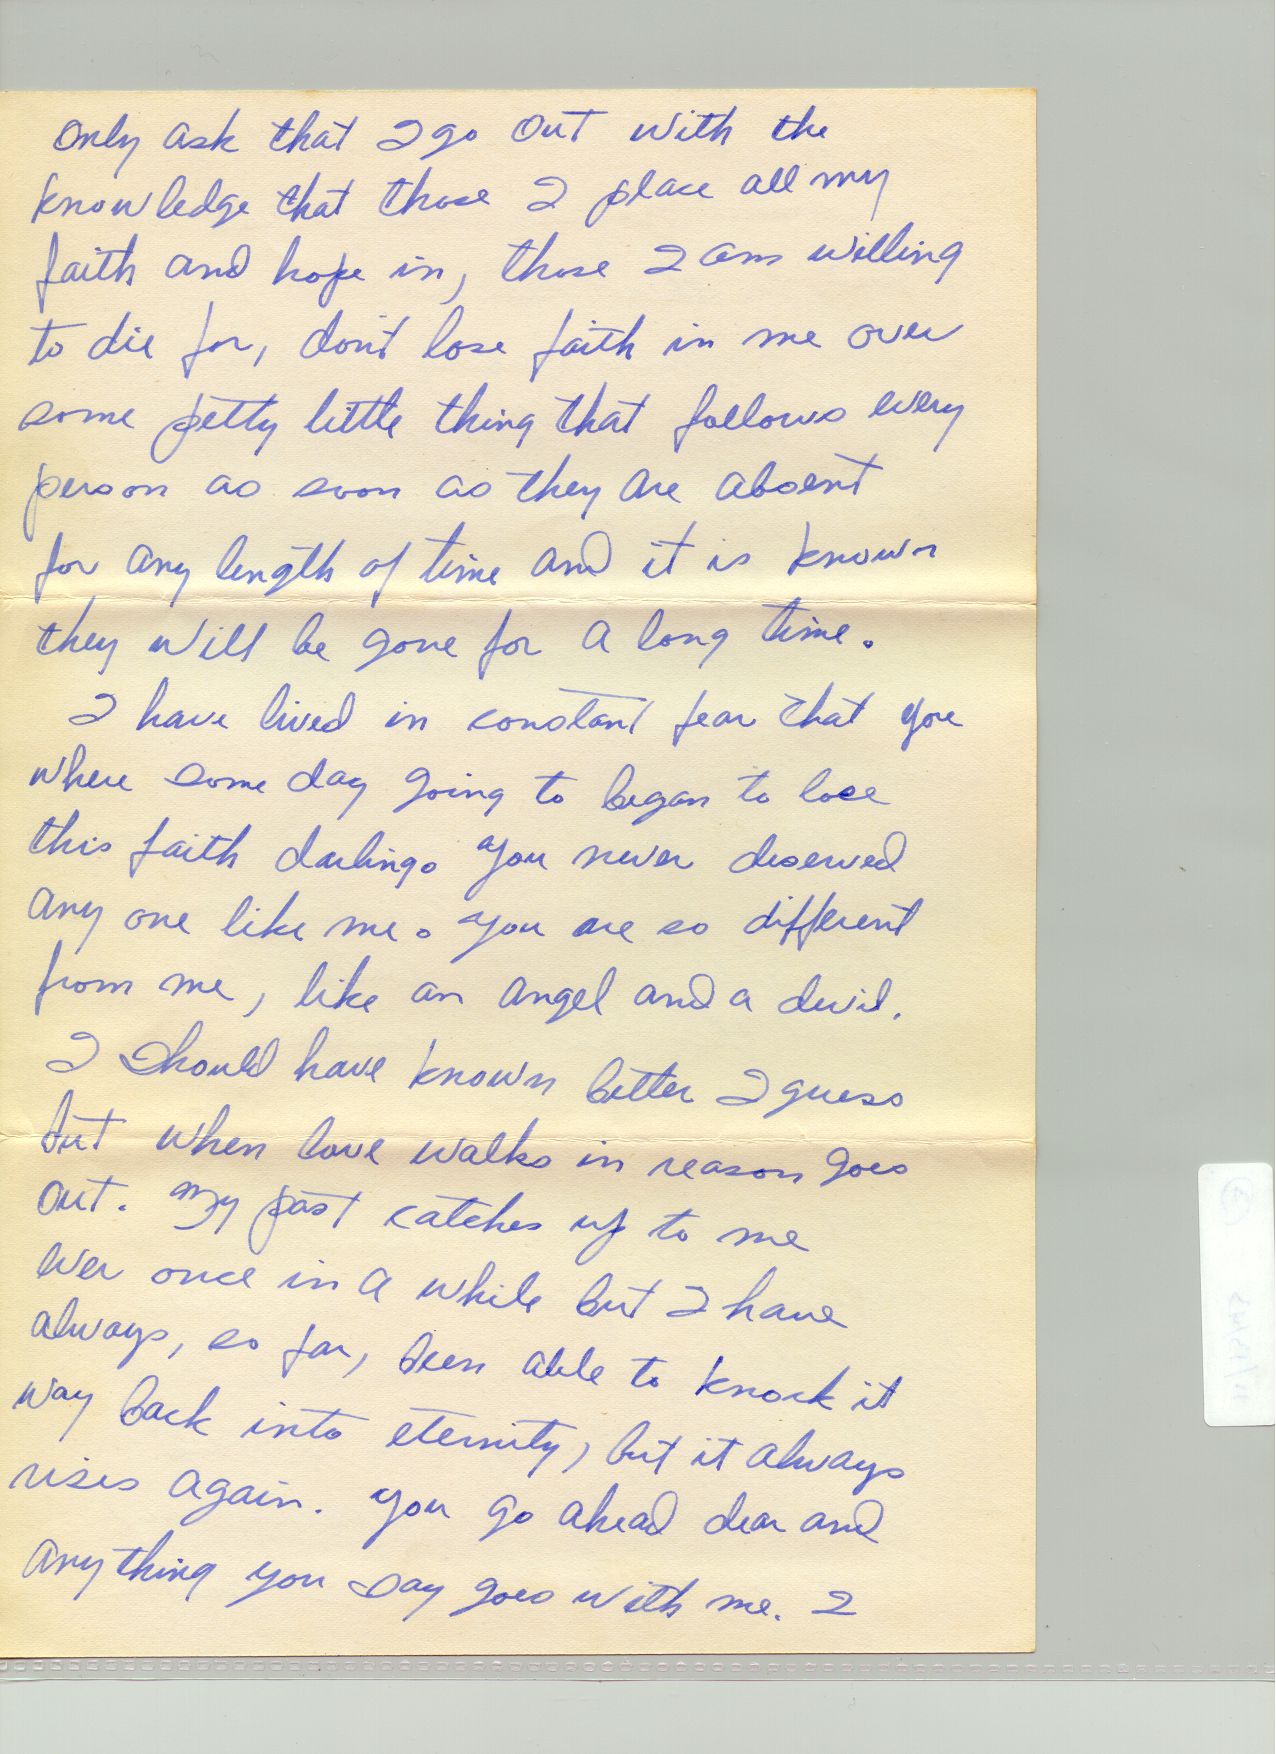 only ask that I go out with the
knowledge that those I place all my
faith and hope in, those I am willing
to die for, don't lose faith in me over
some petty little thing that follows every
person as soon as they are absent
for any length of time and it is known
they will be gone for a long time.
I have lived in constant fear that you
where some day going to began to lose
this faith darling. You never deserved
any one like me. You are so different
from me, like an angel and a devil.
I should have known better I guess
but when love walks in reason goes
out. My past catches up to me
ever once in a while but I have
always, so far, been able to knock it
way back into eternity, but it always
rises again. You go ahead dear and
anything you say goes with me. I